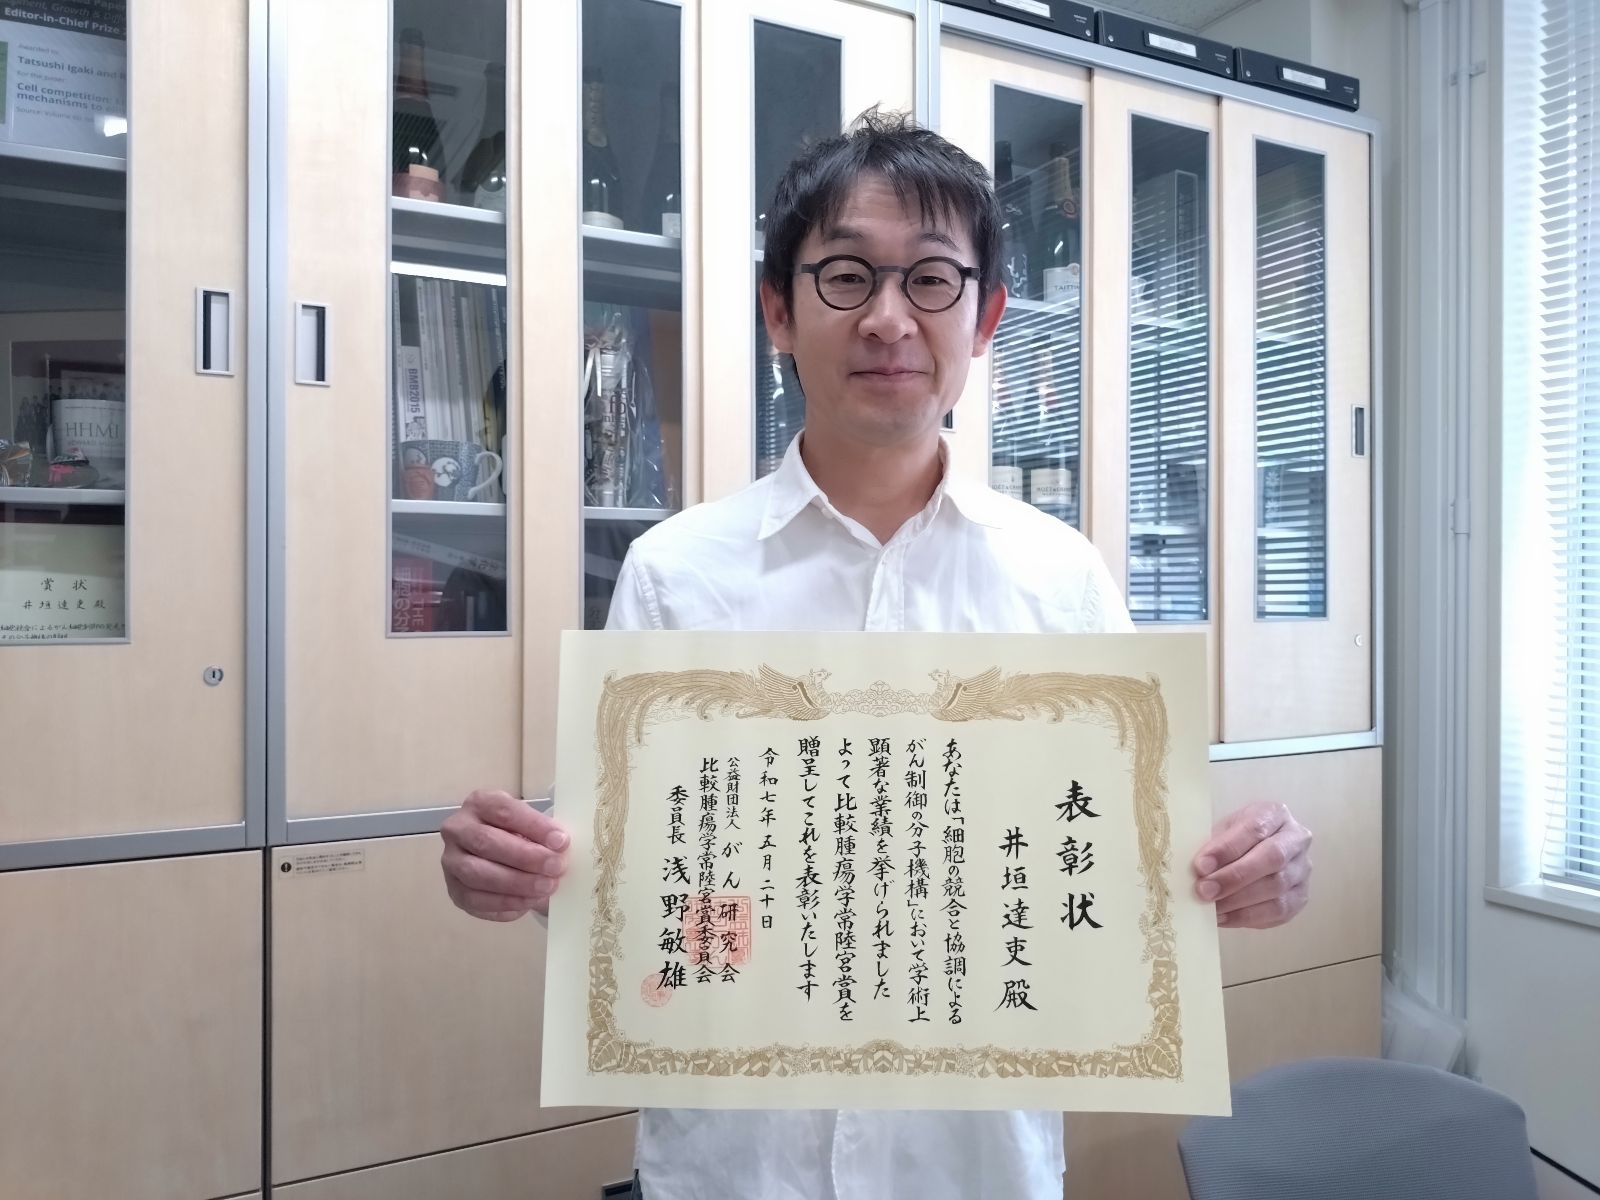 表彰状
井垣達吏殿
あなたは「細胞の競合と協調による
がん制御の分子機構」において学術上
顕著な業績を挙げられました
よって比較腫瘍学常陸宮賞を
贈呈してこれを表彰いたします
令和七年五月二十日
公益財団法人 がん研究会
比較腫瘍学常陸宮賞委員会
委員長 浅野敏雄
Editor-in-Chief Prize
Awarded to:
Tatsushi Igaki and
For the paper:
Cell competition:
mechanisms to
賞状
井垣達吏殿
BMB2015
HHMI